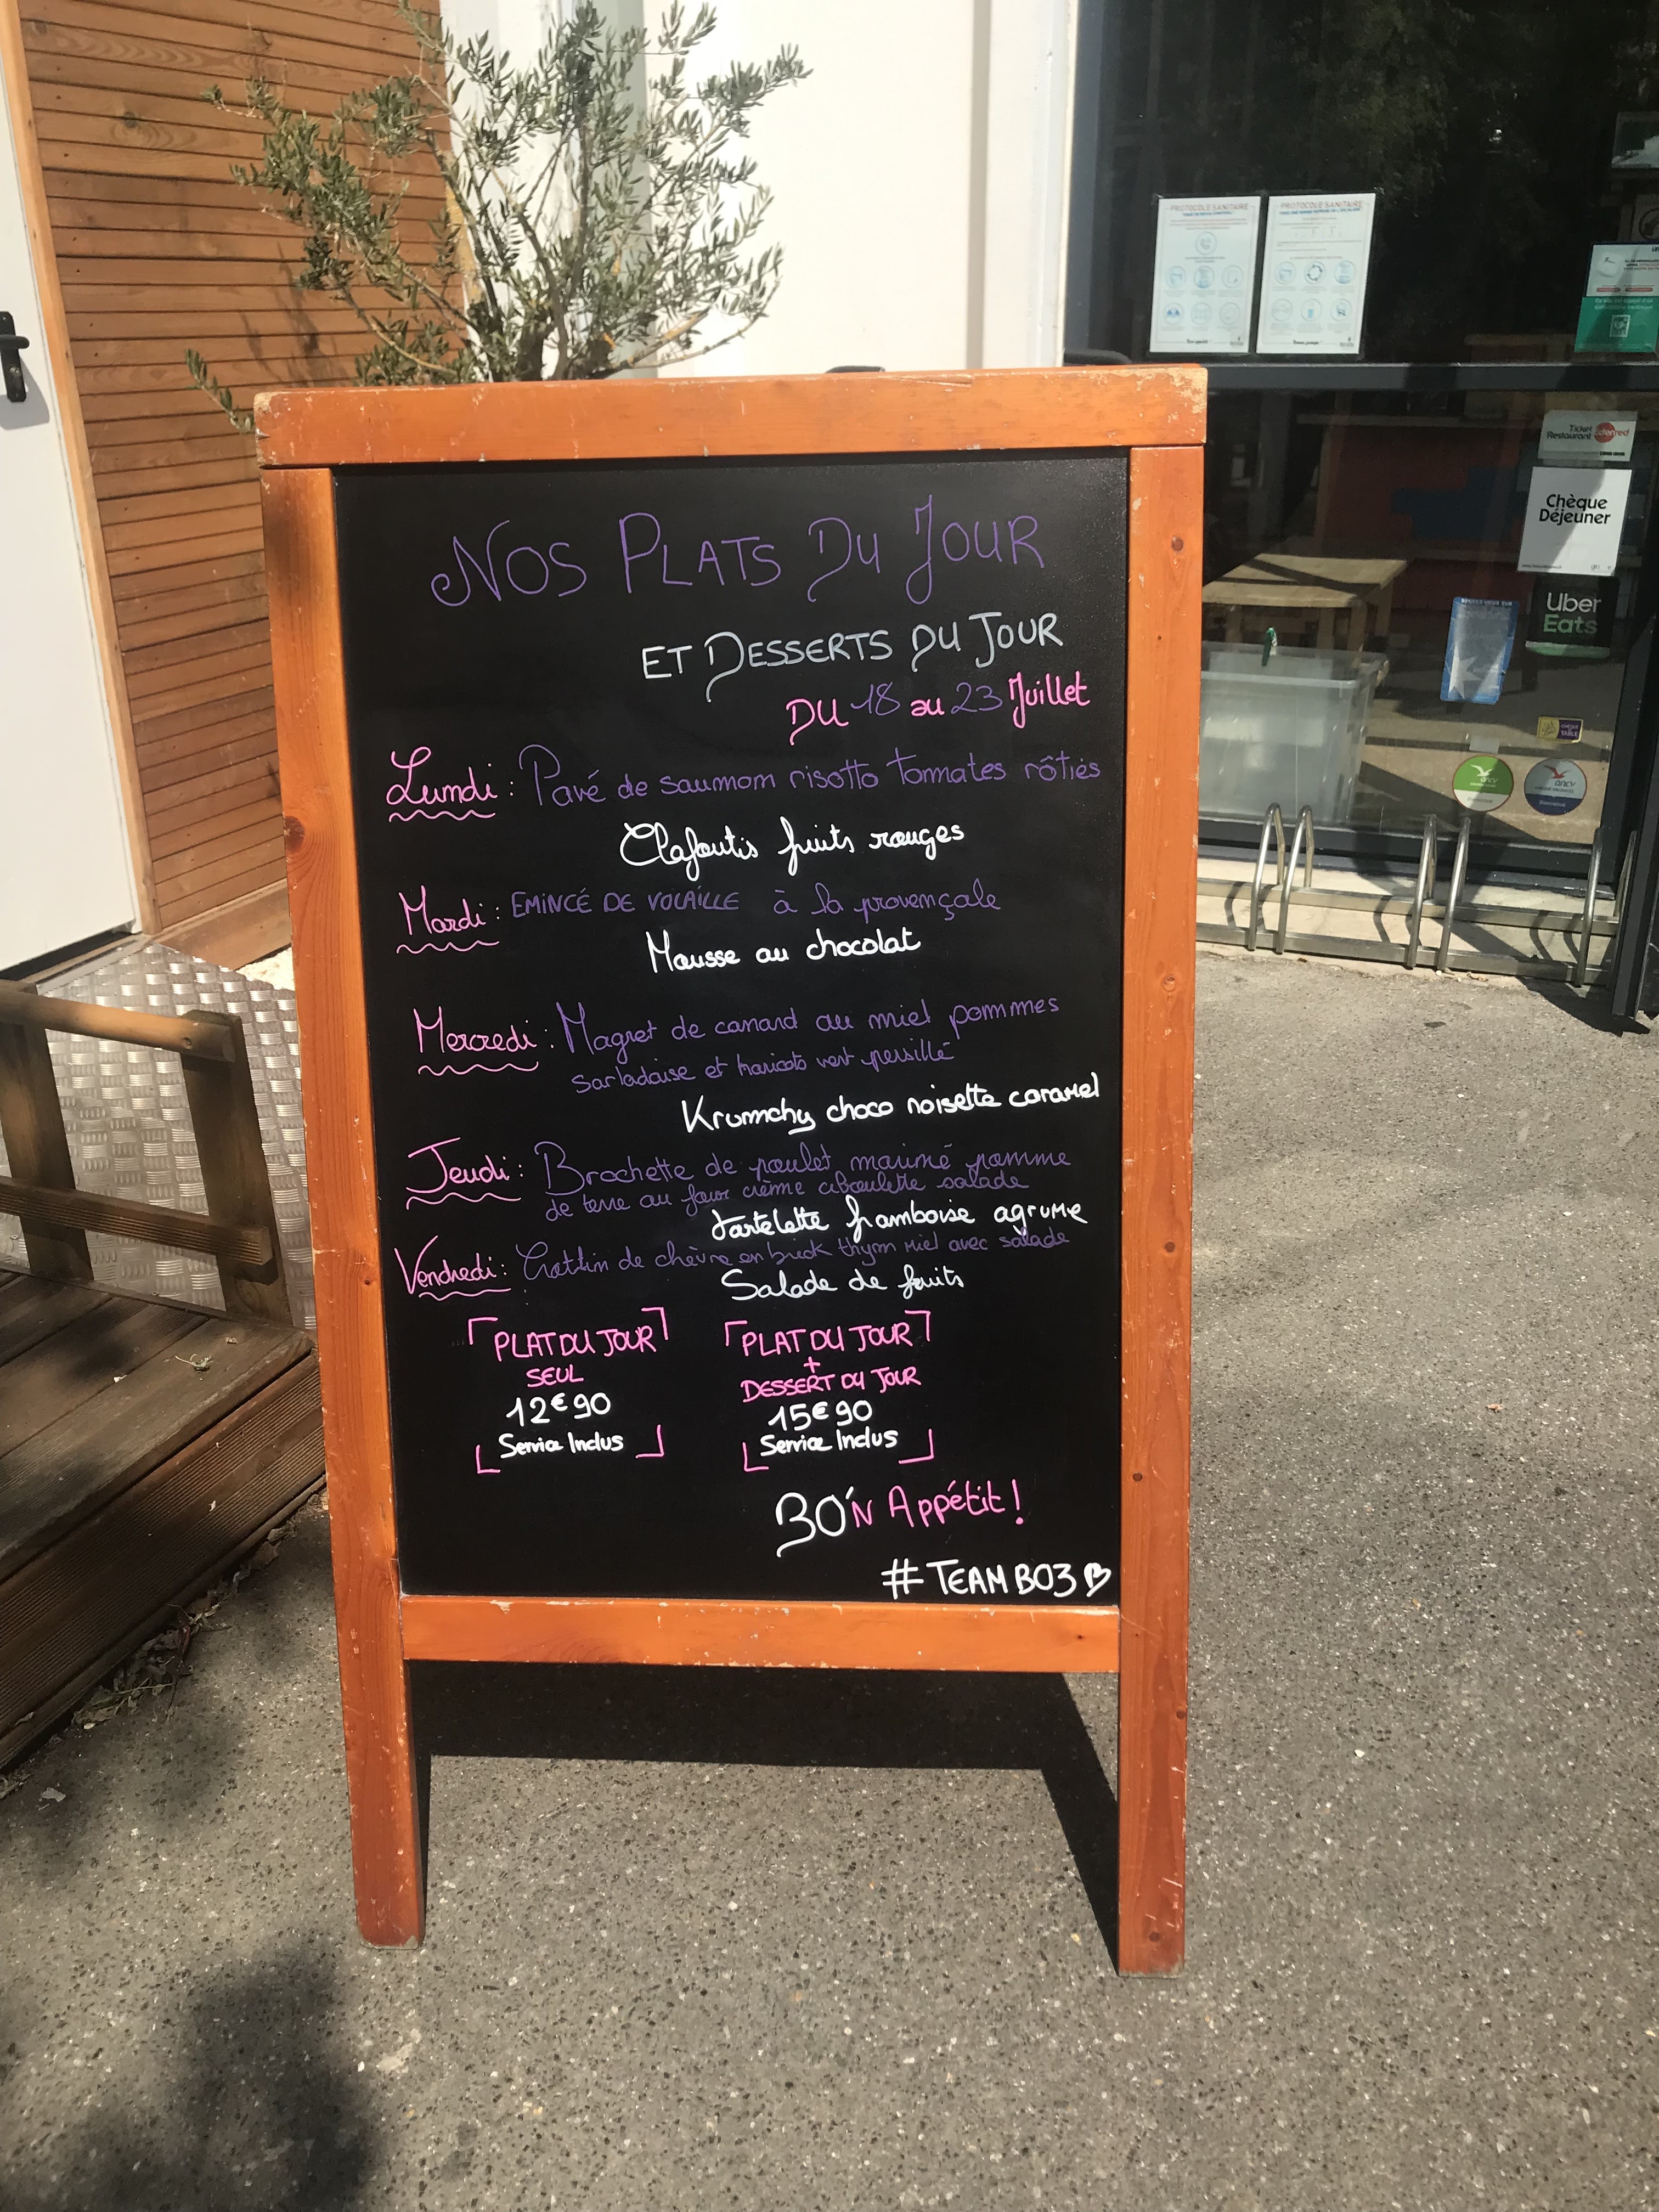 NOS PLATS DU JOUR
ET DESSERTS DU JOUR
DU 18 au 23 Juillet
Lundi : Pavé de saumon risotto tomates rôties
Clafoutis fruits rouges
Mardi : EMINCÉ DE VOLAILLE à la provençale
Mousse au chocolat
Mercredi : Magret de canard au miel pommes
sarladaise et haricots vert persillé
Krunchy choco noisette caramel
Jeudi : Brochette de poulet mariné pomme
de terre au four crème ciboulette salade
tartelette framboise agrume
Vendredi : de chèvre en brick thym miel avec salade
Salade de fruits
PLAT DU JOUR
SEUL
12€90
Service Inclus
PLAT DU JOUR
+
DESSERT DU JOUR
15€90
Service Inclus
BO'N Appétit !
#TEAM BO3
PROTOCOLE SANITAIRE
PROTOCOLE SANITAIRE
Ticket
Restaurant
Chèque
Déjeuner
Uber
Eats
ancv
ancv